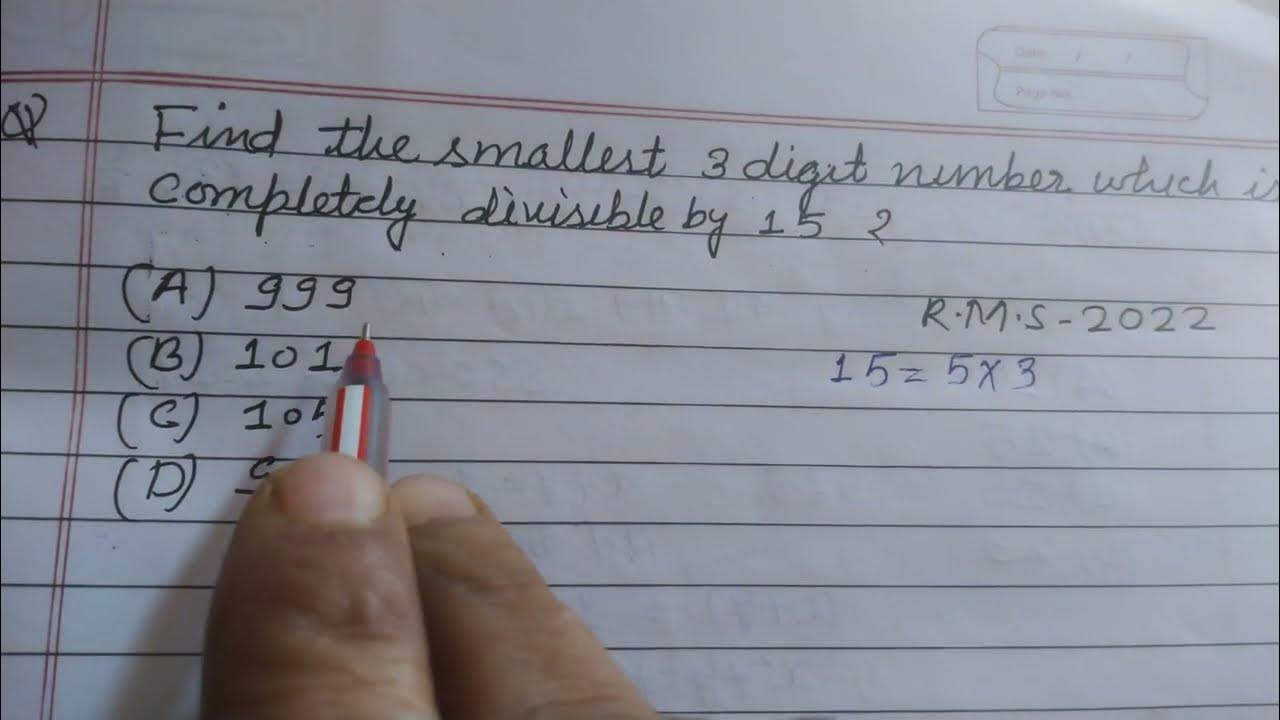 Date / /
Page No.
Q Find the smallest 3 digit number which is
completely divisible by 15 ?
(A) 999
R.M.S-2022
(B) 101
15 = 5 x 3
(C) 105
(D)